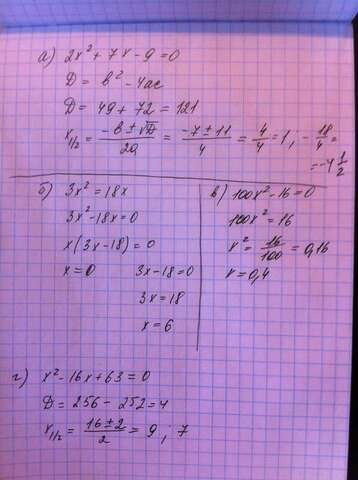 а) 2x² + 7x - 9 = 0
D = b² - 4ac
D = 49 + 72 = 121
x₁/₂ = (-b ± √D)/2a = (-7 ± 11)/4 = 4/4 = 1 ; -18/4 =
= -4 1/2
б) 3x² = 18x
3x² - 18x = 0
x(3x - 18) = 0
x = 0 3x - 18 = 0
3x = 18
x = 6
в) 100x² - 16 = 0
100x² = 16
x² = 16/100 = 0,16
x = 0,4
г) x² - 16x + 63 = 0
D = 256 - 252 = 4
x₁/₂ = (16 ± 2)/2 = 9 ; 7